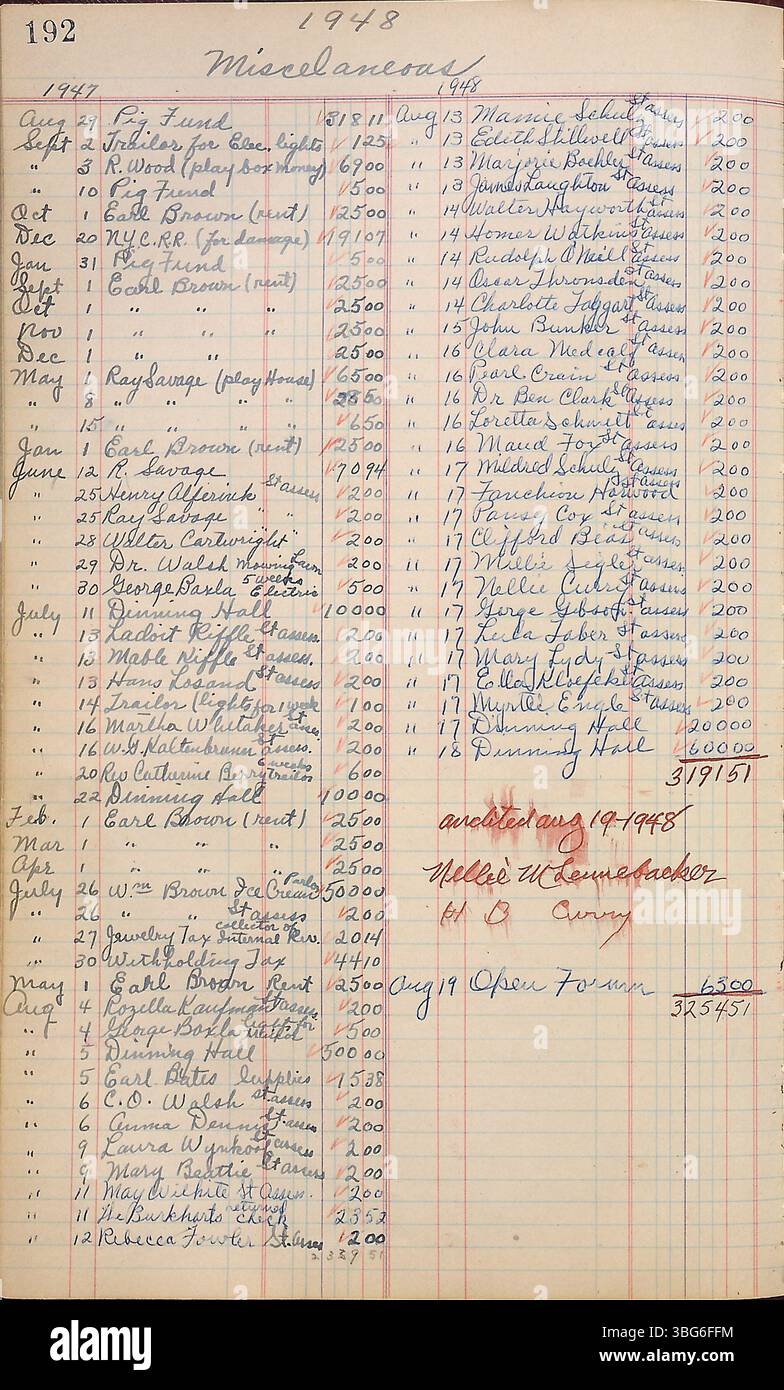 192
1948
Miscelaneous
1947
Aug 29 Pig Fund 318 11
Sept 2 Trailor for Elec. lights 1 25
" 3 R. Wood (play box money) 69 00
" 10 Pig Fund 5 00
Oct 1 Earl Brown (rent) 25 00
Dec 20 N.Y.C.R.R. (for damage) 191 07
Jan 31 Pig Fund 5 00
Sept 1 Earl Brown (rent) 25 00
Oct 1 " " " 25 00
Nov 1 " " " 25 00
Dec 1 " " 25 00
May 1 Ray Savage (play House) 65 00
" 8 " " " "
" 15 " " " " 6 50
Jan 1 Earl Brown (rent) 25 00
June 12 R. Savage 70 94
" 25 Henry Alferink St assess 2 00
" 25 Ray Savage " " 2 00
" 28 Walter Cartwright " 2 00
" 29 Dr. Walsh mowing Lawn 2 00
" 30 George Baxla 5 weeks Electric 5 00
July 11 Dinning Hall 100 00
" 13 Ladoit Riffle St assess. 2 00
" 13 Mable Riffle St assess. 2 00
" 13 Hans Losand St assess 2 00
" 14 Trailor (lights for 1 week 1 00
" 16 Martha Whitaker St asses 2 00
" 16 W.G. Kaltenbrunn St assess. 2 00
" 20 Rev Catherine Berry 6 weeks trailor 6 00
" 22 Dinning Hall 100 00
Feb. 1 Earl Brown (rent) 25 00
Mar 1 " " " 25 00
Apr 1 " " " 25 00
July 26 Wm Brown Ice Cream Parlor 500 00
" 26 " " St assess 2 00
" 27 Jewelry Tax collector of Internal Rev. 20 14
" 30 Withholding Tax 44 10
May 1 Earl Brown Rent 25 00
Aug 4 Rozella Kaufman St assess 2 00
" 4 George Baxla 5 00
" 5 Dinning Hall 500 00
" 5 Earl Bates Supplies 15 38
" 6 C.O. Walsh St assess 2 00
" 6 Anna Dennis St asses 2 00
" 9 Laura Wynkoop St assess 2 00
" 9 Mary Beattie St assess 2 00
" 11 May Wilhite St Assess. 2 00
" 11 Burkharts returned check 23 52
" 12 Rebecca Fowler St. asses 2 00
2339 51
1948
Aug 13 Mamie Schulz St assess 2 00
" 13 Edith Stillwell St assess 2 00
" 13 Marjorie Boehler St assess 2 00
" 13 James Laughton St assess 2 00
" 14 Walter Hayworth St assess 2 00
" 14 Homer Watkins St assess 2 00
" 14 Rudolph O'Neill St assess 2 00
" 14 Oscar Thronsden St assess 2 00
" 14 Charlotte Taggart St assess 2 00
" 15 John Bunker St assess 2 00
" 16 Clara Medcalf St assess 2 00
" 16 Pearl Crain St assess 2 00
" 16 Dr Ben Clark St assess 2 00
" 16 Loretta Schmitt St asses 2 00
" 16 Maud Fox St assess 2 00
" 17 Mildred Schulz St assess 2 00
" 17 Fanchion Harwood St assess 2 00
" 17 Pansy Cox St assess 2 00
" 17 Clifford Bias St assess 2 00
" 17 Millie Sigler St assess 2 00
" 17 Nellie Curry St assess 2 00
" 17 Gorge Gibson St assess 2 00
" 17 Luca Faber St assess 2 00
" 17 Mary Lydy St assess 2 00
" 17 Ella Kloefekt St assess 2 00
" 17 Myrtle Engle St assess 2 00
" 17 Dinning Hall 200 00
" 18 Dinning Hall 600 00
3191 51
audited aug 19-1948
Nellie M Lennebacker
H B Curry
Aug 19 Open Forum 63 00
3254 51
alamy
Image ID: 3BG6FFM
www.alamy.com